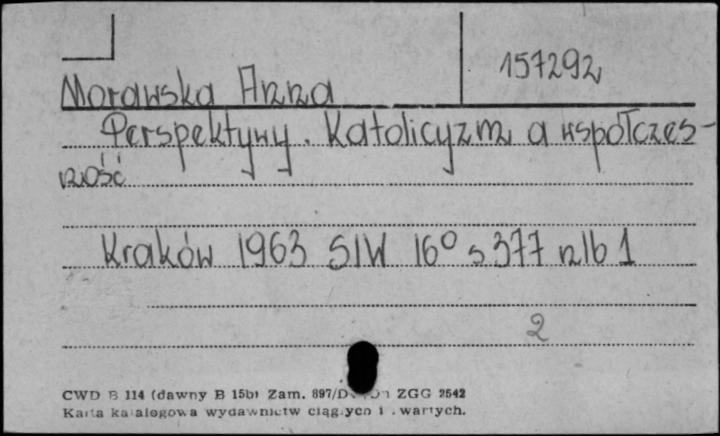 157292
Morawska Anna
Perspektywy. Katolicyzm a współczes-
ność
Kraków 1963 SIW 16° s 377 nlb 1
2
CWD B 114 (dawny B 15b) Zam. 897/D ZGG 2542
Karta katalogowa wydawnictw ciągłych i zwartych.